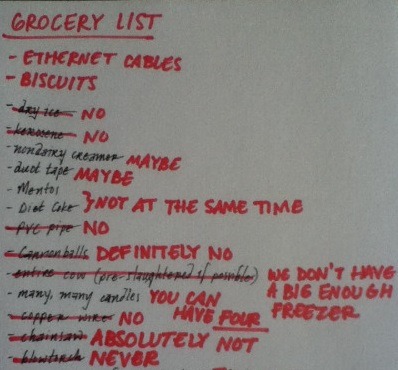 GROCERY LIST
- ETHERNET CABLES
- BISCUITS
- dry ice NO
- kerosene NO
- nondairy creamer MAYBE
- duct tape MAYBE
- Mentos
- Diet Coke } NOT AT THE SAME TIME
- PVC pipe NO
- Cannonballs DEFINITELY NO
- entire cow (pre-slaughtered if possible) WE DON'T HAVE A BIG ENOUGH FREEZER
- many, many candles YOU CAN HAVE FOUR
- copper wire NO
- chainsaw ABSOLUTELY NOT
- blowtorch NEVER